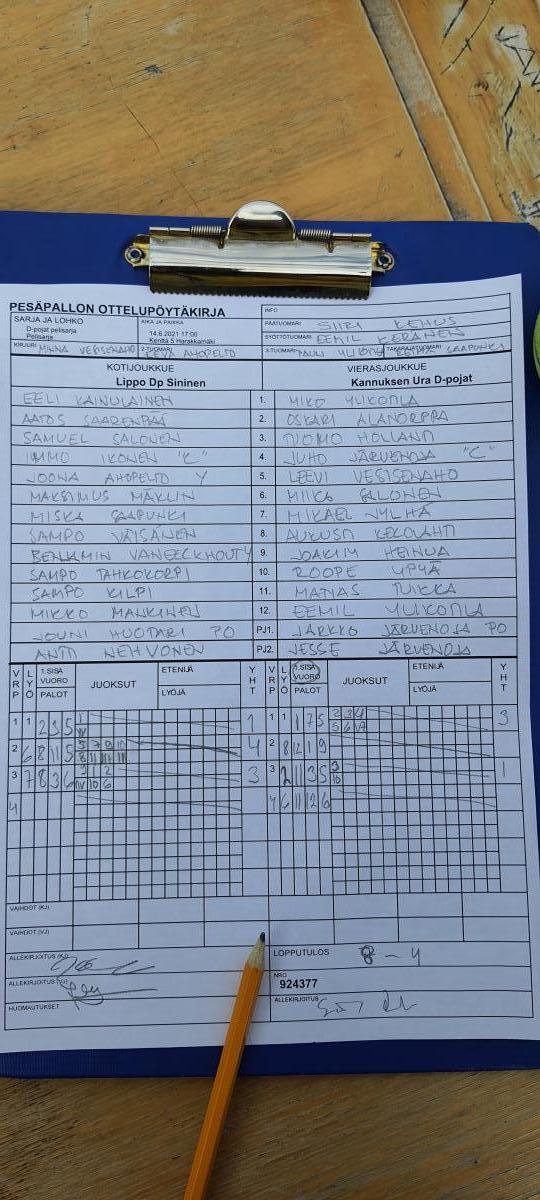 PESÄPALLON OTTELUPÖYTÄKIRJA
INFO
SARJA JA LOHKO
D-pojat pelisarja
Pelisarja
AIKA JA PAIKKA
14.6.2021 17:00
Kenttä 5 Harakkamäki
PÄÄTUOMARI SIIRI KEHUS
SYÖTTÖTUOMARI EEMIL KERÄNEN
KIRJURI MINNA VESISENAHO
2-TUOMARI AHOPELTO
3-TUOMARI TAKARAJATUOMARI SAAPUNKI
KOTIJOUKKUE
Lippo Dp Sininen
VIERASJOUKKUE
Kannuksen Ura D-pojat
EELI KAINULAINEN 1. MIKO YLIKOTILA
AATOS SAARENPÄÄ 2. OSKARI ALANORPPA
SAMUEL SALONEN 3. TUOMO HOLLANTI
IMMO IKONEN "C" 4. JUHO JÄRVENOJA "C"
JOONA AHOPELTO Y 5. LEEVI VESISENAHO
MAKSIMUS MÄKLIN 6. MIIKA SALONEN
MISKA SAAPUNKI 7. MIKAEL JYLHÄ
SAMPO VÄISÄNEN 8. AUKUSTI KEKOLAHTI
BENJAMIN VANEECKHOUTY 9. JOAKIM HEINUA
SAMPO TAHKOKORPI 10. ROOPE YPYÄ
SAMPO KILPI 11. MATIAS TUIKKA
MIKKO MANKINEN 12. EEMIL YLIKOTILA
JOUNI HUOTARI PO PJ1. JARKKO JÄRVENOJA PO
ANTTI NEHVONEN PJ2. JESSE JÄRVENOJA
VRP LYÖ 1.SISÄ VUORO PALOT JUOKSUT ETENIJÄ LYÖJÄ YHT
VRP LYÖ 1.SISÄ VUORO PALOT JUOKSUT ETENIJÄ LYÖJÄ YHT
1 1 2 3 5 1
1 1 1 7 5 2 3 4 3
2 6 8 11 5 5 7 9 10 4
2 8 12 1 9
3 7 8 3 6 3
3 2 11 3 5 9 10 1
4
4 6 11 12 6
VAIHDOT (KJ)
VAIHDOT (VJ)
ALLEKIRJOITUS (KJ)
LOPPUTULOS 8 - 4
ALLEKIRJOITUS (VJ)
NRO
924377
HUOMAUTUKSET
ALLEKIRJOITUS